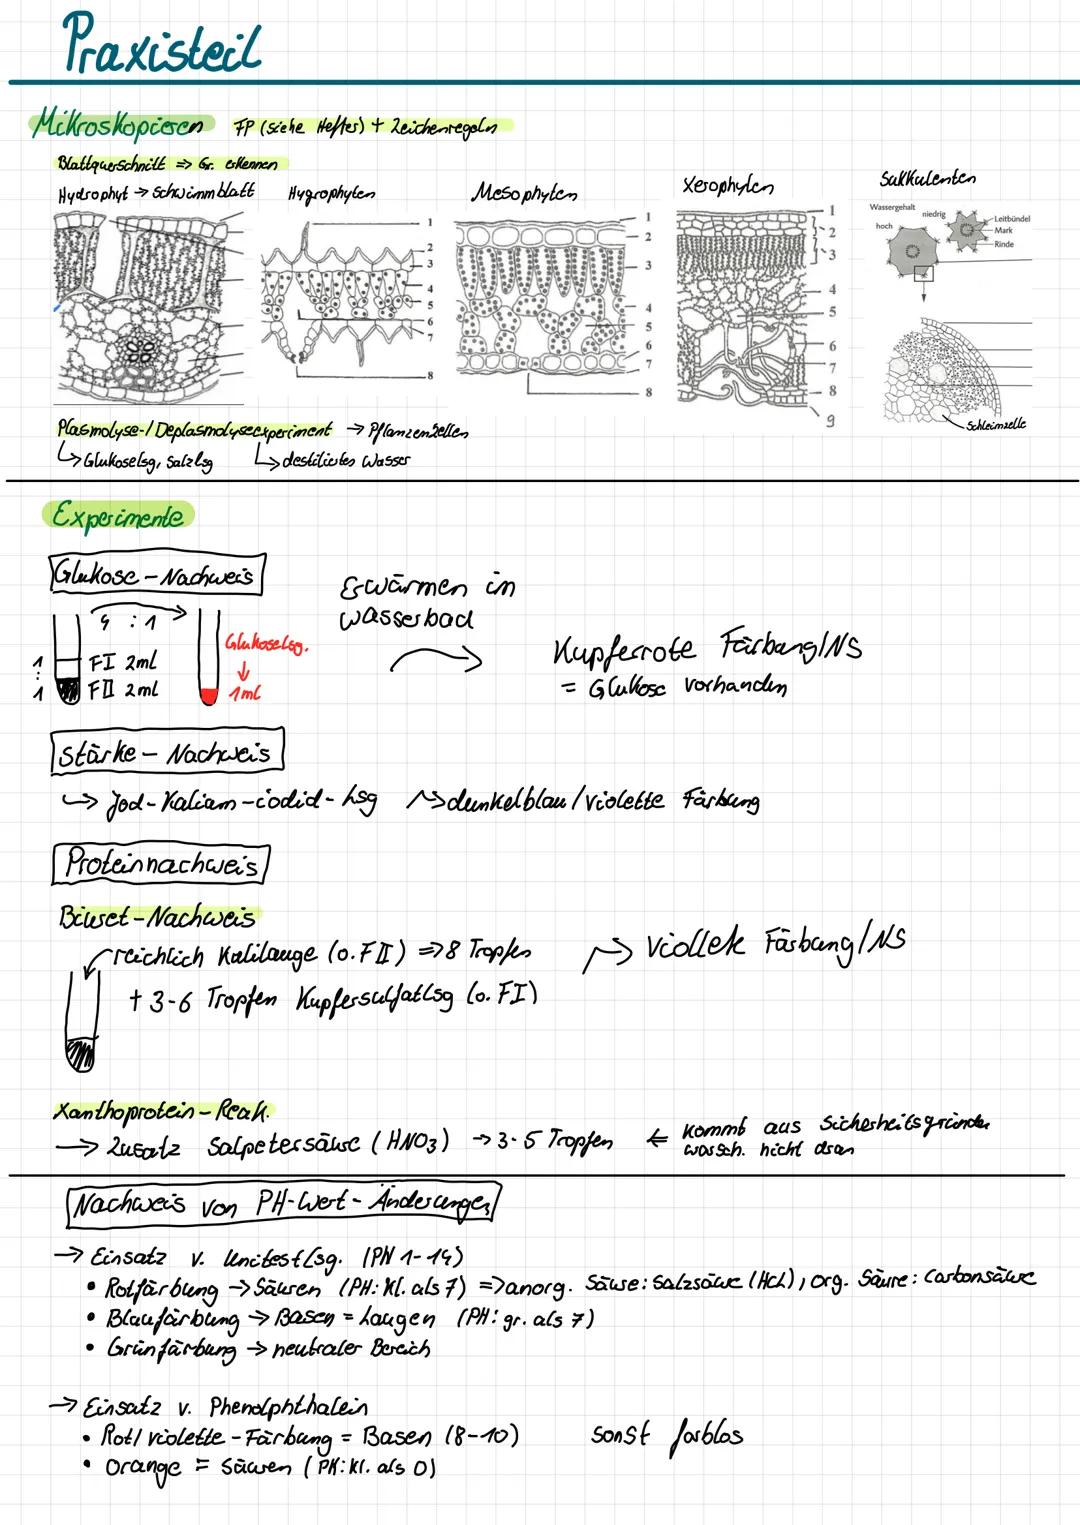 Praxisteil
Mikroskopieren FP (siehe Hefter) + Zeichenregeln
Blattquerschnitt => Gr. erkennen
Hydrophyt → Schwimmblatt
Hygrophyten
Mesophyten
Xerophyten
Sukkulenten
1
2
3
4
5
6
7
8
1
2
3
4
5
6
7
8
1
2
3
4
5
6
7
8
9
Wassergehalt
hoch
niedrig
Leitbündel
Mark
Rinde
Schleimzelle
Plasmolyse-/Deplasmolyseexperiment → Pflanzenzellen
↳ Glukoselsg, Salzlsg ↳ destiliertes Wasser
Experimente
Glukose-Nachweis
4 : 1
1 FI 2ml
:
1 FII 2ml
Glukoselsg.
↓
1ml
Erwärmen im
Wasserbad
Kupferrote Färbung/NS
= Glukose vorhanden
Stärke-Nachweis
↳ Jod-Kalium-iodid-Lsg ↝ dunkelblau/violette Färbung
Proteinnachweis
Biuret-Nachweis
reichlich Kalilauge (o. FII) => 8 Tropfen
+ 3-6 Tropfen Kupfersulfatlsg (o. FI)
↝ Viollek Färbung/NS
Xanthoprotein-Reak.
→ Zusatz Salpetersäure (HNO3) → 3-5 Tropfen ← kommt aus Sicherheitsgründen
warsch. nicht dran
Nachweis von PH-Wert-Änderungen
→ Einsatz v. Unitestlsg. (PH 1-14)
• Rotfärbung → Säuren (PH: Kl. als 7) => anorg. Säure: Salzsäure (HCL), org. Säure: Carbonsäure
• Blaufärbung → Basen = Laugen (PH: gr. als 7)
• Grünfärbung → neutraler Bereich
→ Einsatz v. Phenolphthalein
• Rot/violette-Färbung = Basen (8-10) sonst farblos
• Orange = Säuren (PH: Kl. als 0)